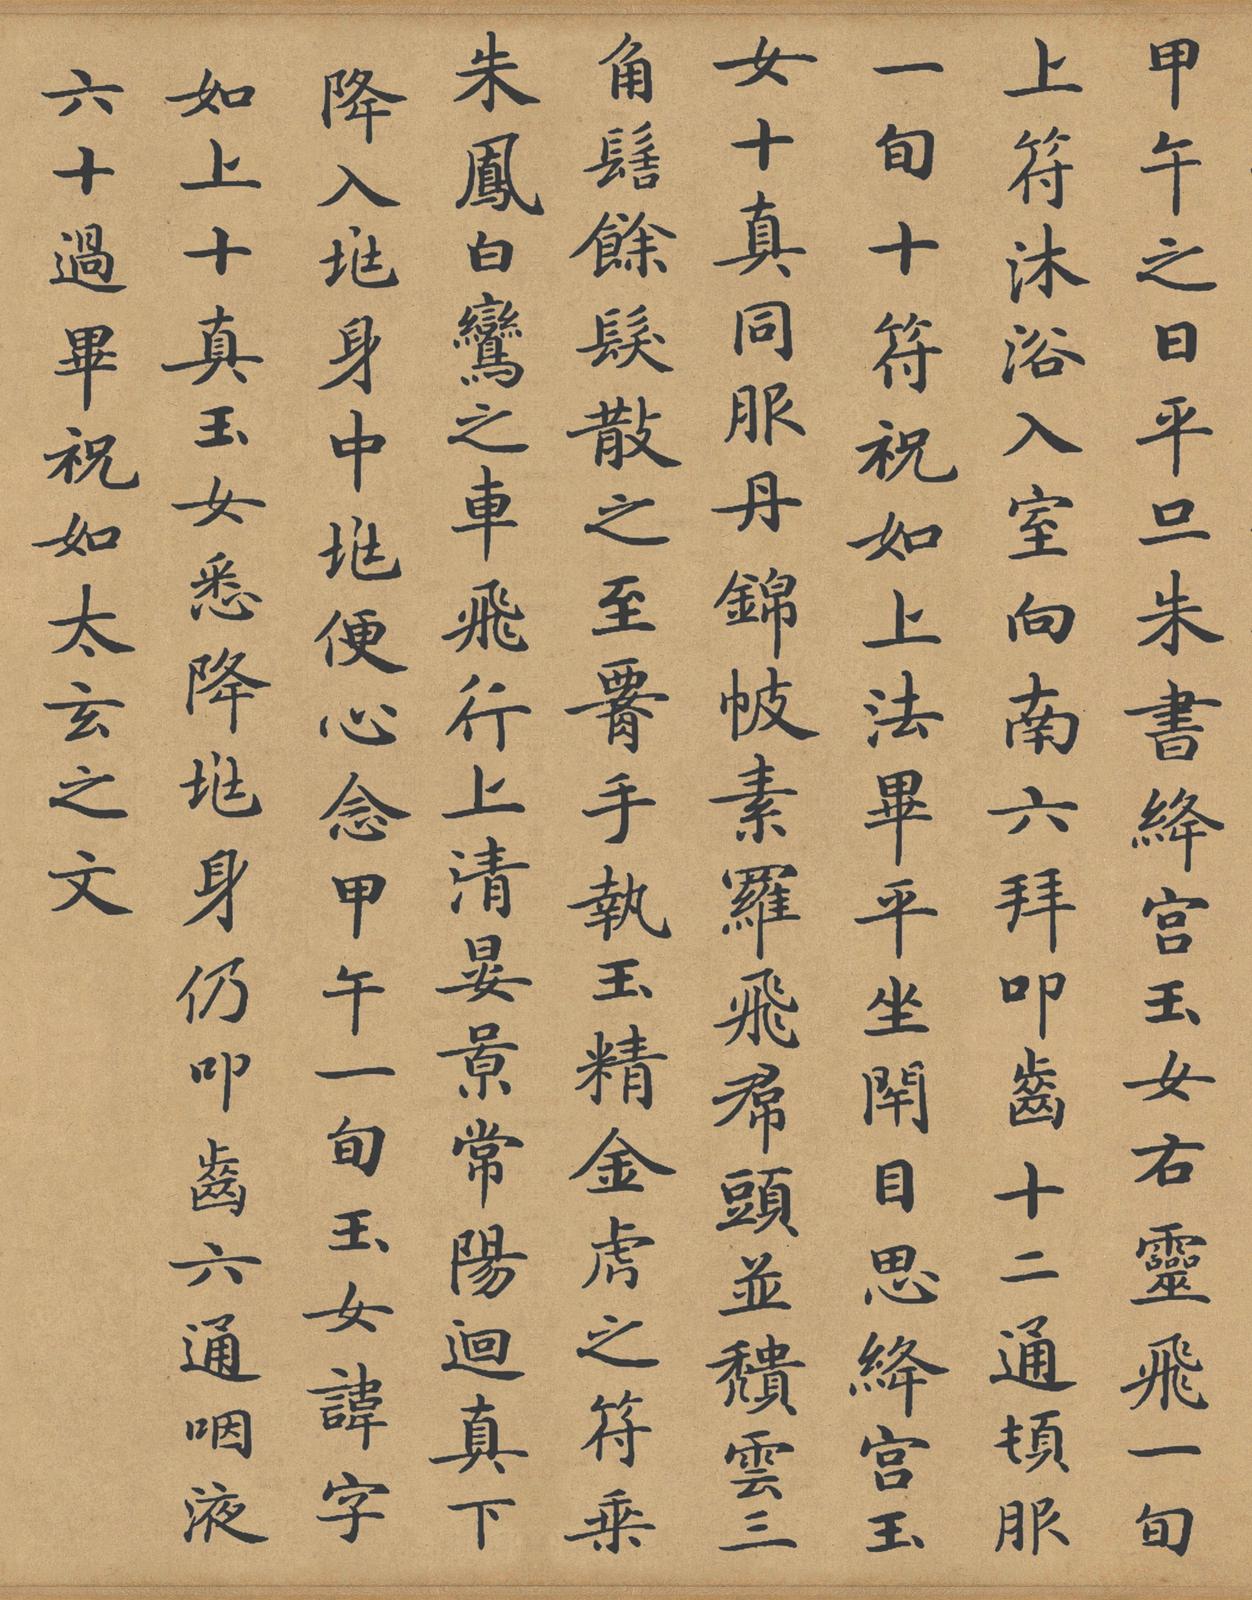 甲午之日平旦朱書絳宮玉女右靈飛一旬
上符沐浴入室向南六拜叩齒十二通頓服
一旬十符祝如上法畢平坐閉目思絳宮玉
女十真同服丹錦帔素羅飛帬頭並穨雲三
角髻餘髮散之至腰手執玉精金虎之符乗
朱鳳白鸞之車飛行上清晏景常陽迴真下
降入兆身中兆便心念甲午一旬玉女諱字
如上十真玉女悉降兆身仍叩齒六通咽液
六十過畢祝如太玄之文